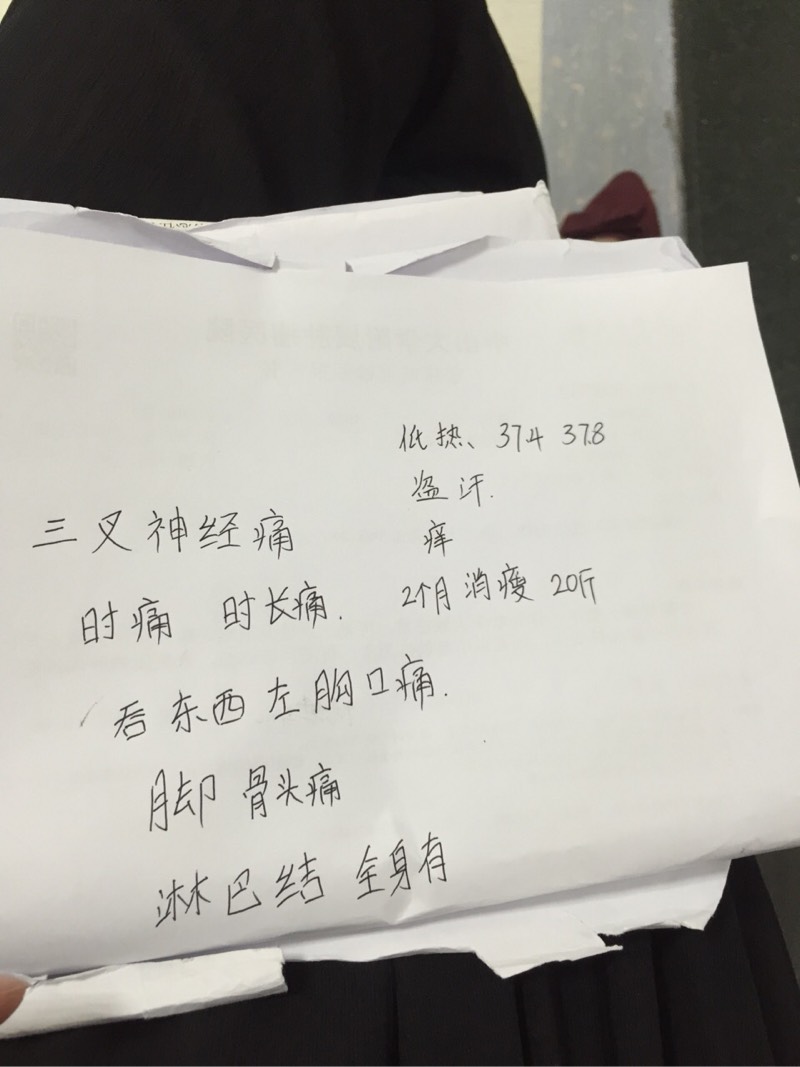 低热、37.4 37.8
盗汗.
痒
2个月 消瘦 20斤
三叉神经痛
时痛 时长痛.
看东西左胸口痛.
脚 骨头痛
淋巴结 全身有